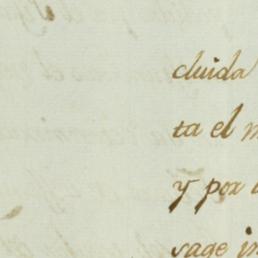 cluida
ta el
y por
sage